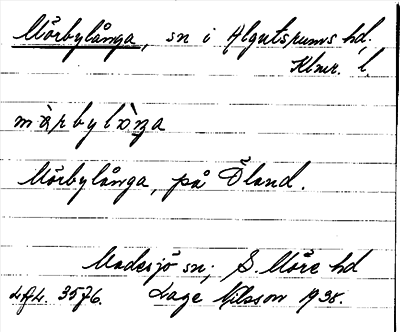 Mörbylånga, sn i Algutsrums hd.
Klmr. l.
màrbylòŋa
Mörbylånga, på Öland.
Madesjö sn; S. Möre hd
LAL. 3576. Lage Nilsson 1938.